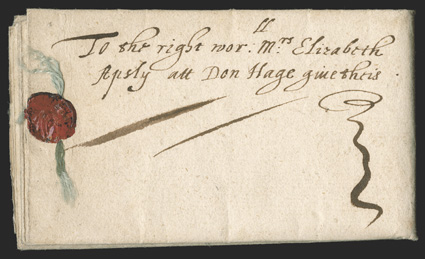 To the right wor:ll Mrs Elizabeth
Apsly att Don Hage give theis.